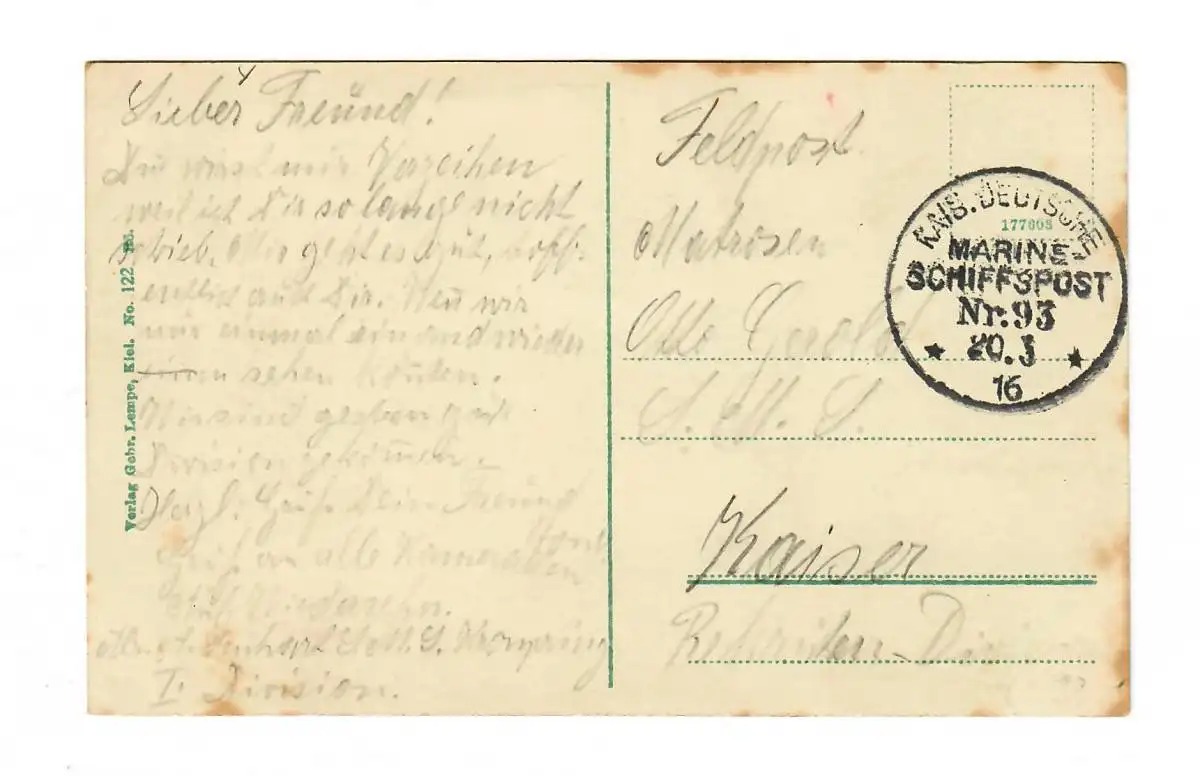 Lieber Freund!
Du wirst mir Verzeihen
weil ich Dir so lange nicht
schrieb. Mir geht es gut, hoff-
entlich auch Dir. Wen wir
nur einmal ein and wieder
sehen köńten.
Wir sind gestern zur
Division gekom̄en.
Herzl. Gruß Dein Freund
Gruß an alle Kameraden
Auf Wiedersehn.
S.M.S. Kronprinz
I. Division.
Verlag Gebr. Lempe, Kiel. No. 122
Feldpost
Matrosen
Otto Gerold
S. M. S.
Kaiser
Rekruten-Division
177603
KAIS. DEUTSCHE
MARINE-
SCHIFFSPOST
Nr. 93
20.3
16